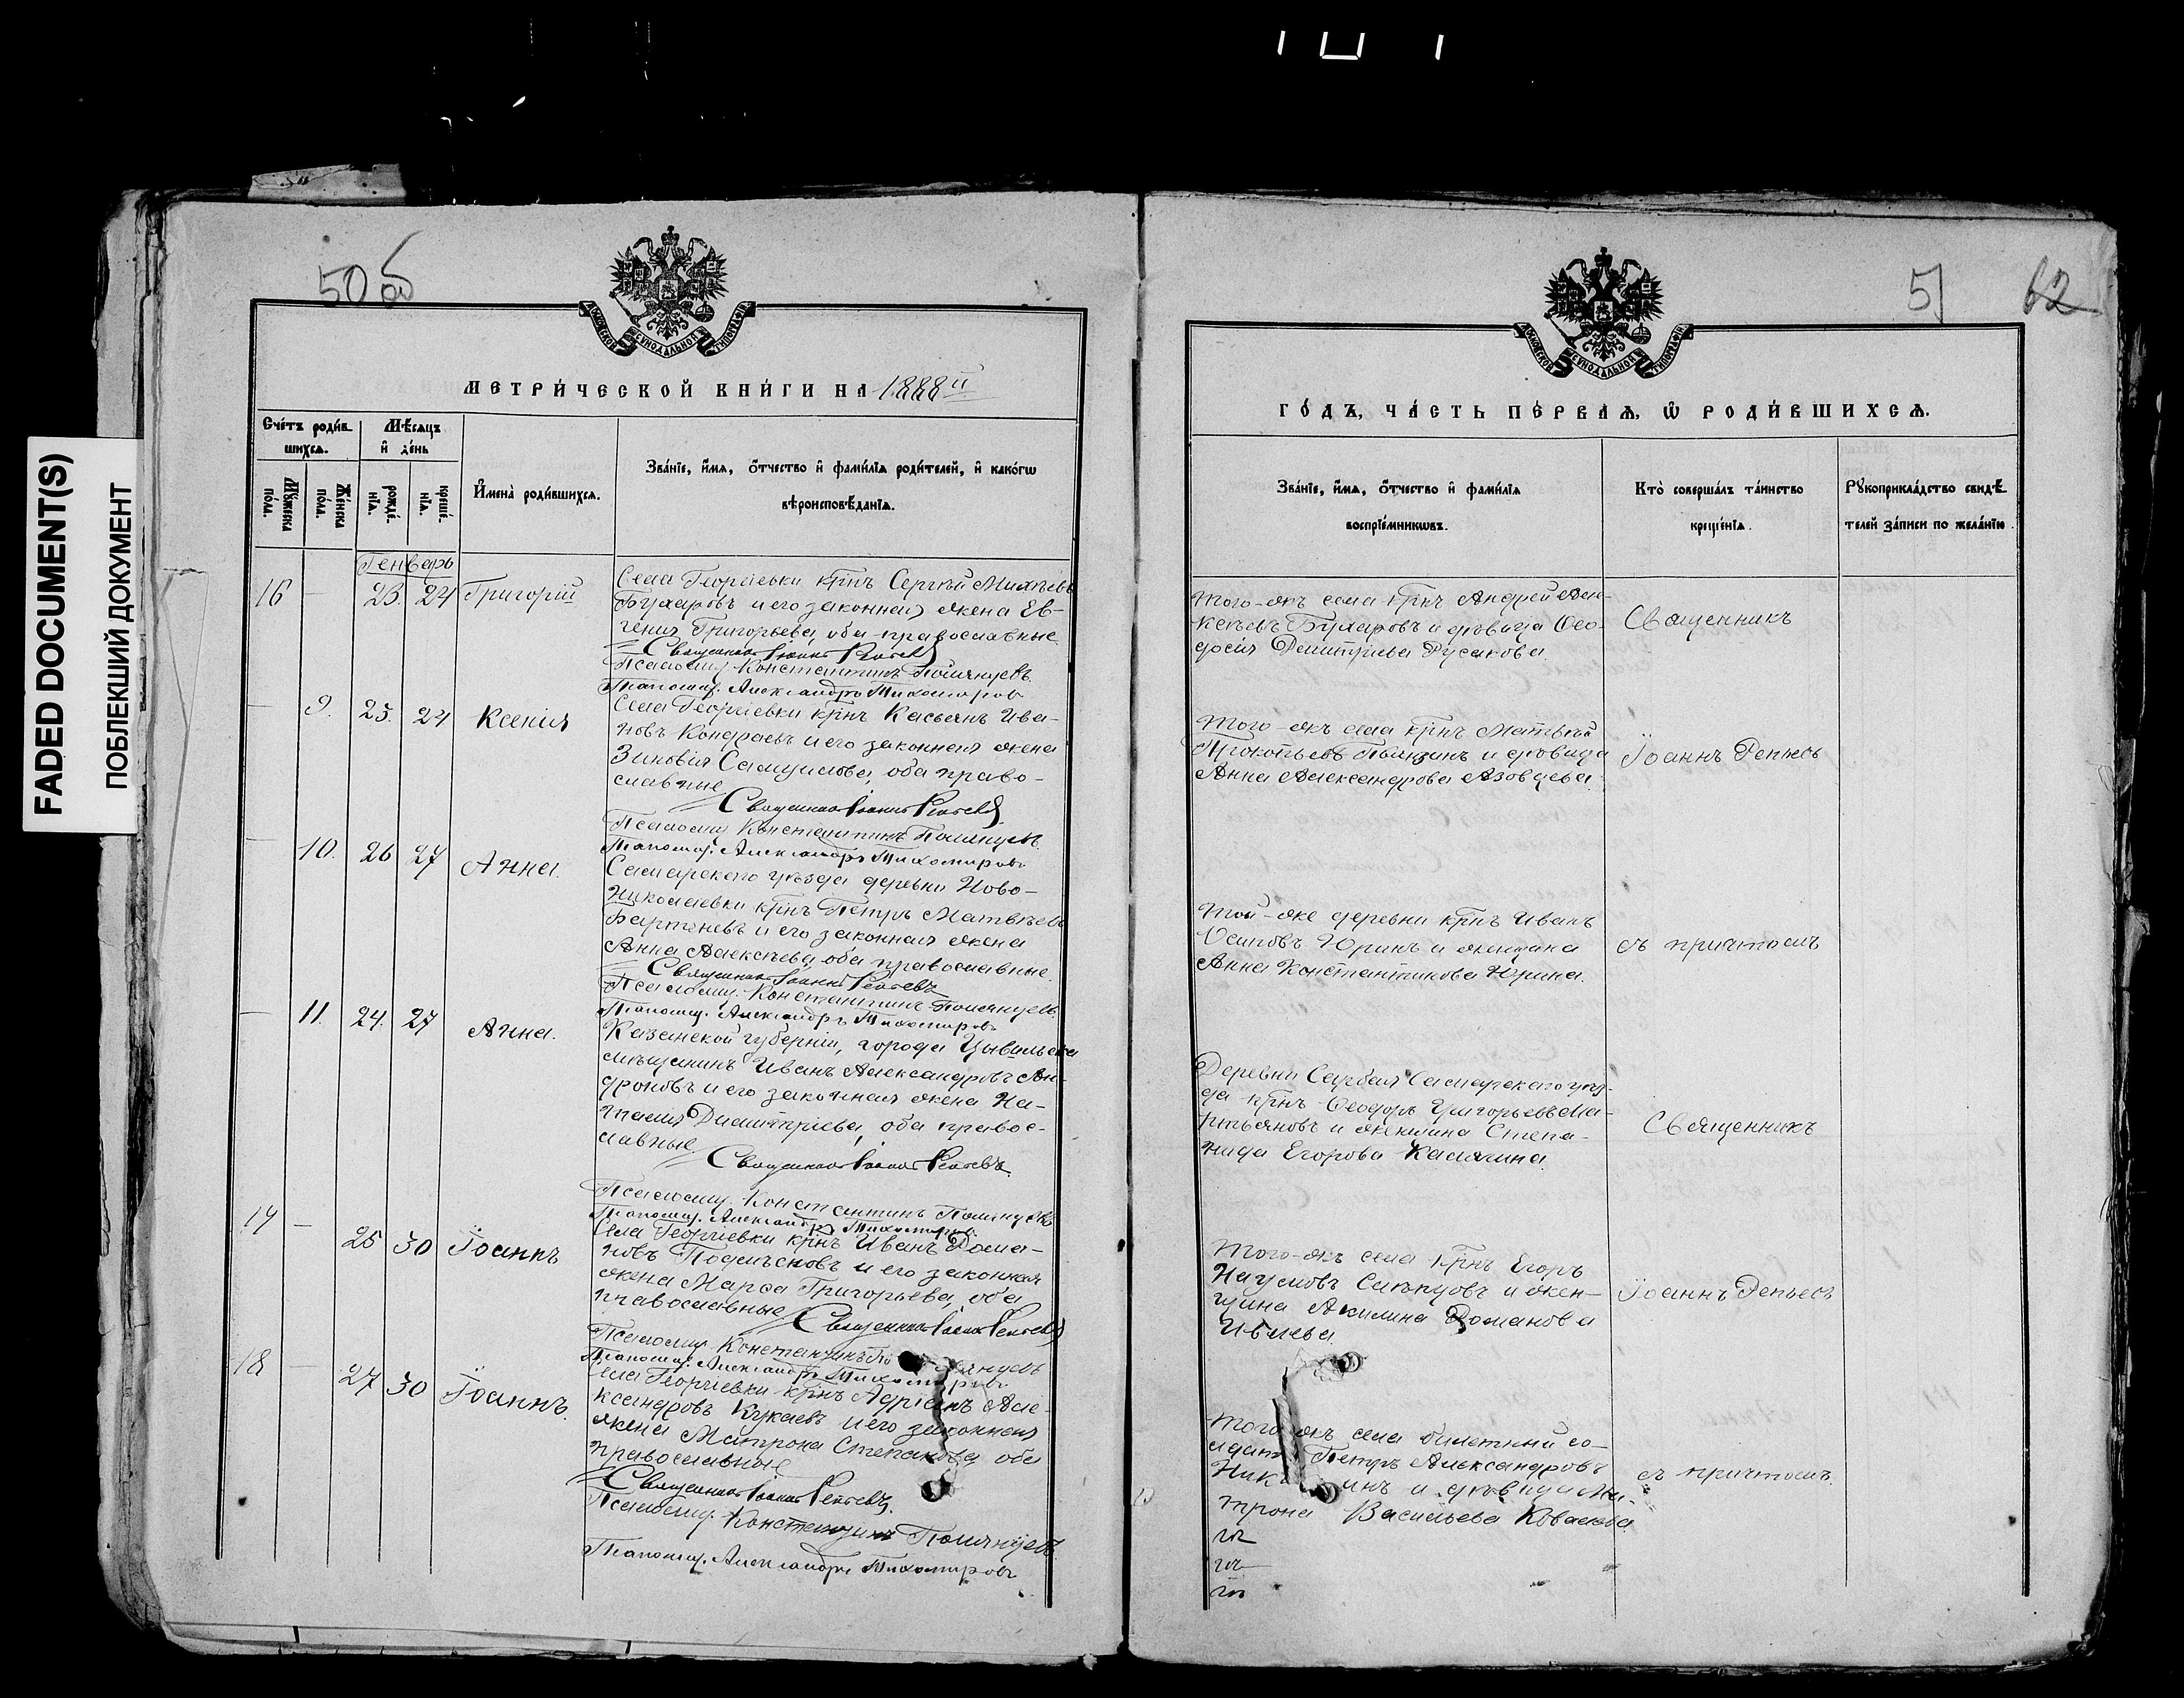 FADED DOCUMENT(S)
ПОБЛЕКШИЙ ДОКУМЕНТ
50 об
МОСКОВСКОЙ СѴНОДАЛЬНОЙ ТИПОГРАФІИ
МЕТРИ́ЧЕСКОЙ КНИ́ГИ НА 1888й
Сче́тъ роди́в
шихсѧ.
Мѣ́сѧцъ
и҆ де́нь
Мꙋ́жеска
по́ла.
Же́нска
по́ла.
рожде́
нїѧ.
креще́
нїѧ.
И҆мена̀ роди́вшихсѧ.
Зва́нїе, и҆́мѧ, ѻ҆́тчество и҆ фами́лїѧ роди́телей, и҆ како́гѡ
вѣроисповѣ́данїѧ.
Генварь
16 — 23. 24 Григорій
Села Георгіевки крнъ Сергѣй Михѣевъ
Бухаровъ и его законная жена Ев-
генія Григорьева, оба православные
Священникъ Іоаннъ Репьевъ
Псаломщ. Константинъ Помянцевъ
Пономар. Александръ Тихомировъ
— 9. 25. 27 Ксенія
Села Георгіевки крнъ Касьянъ Ива-
новъ Кондраевъ и его законная жена
Зиновія Самуилова, оба право-
славные
Священникъ Іоаннъ Репьевъ
Псаломщ. Константинъ Помянцевъ
Пономар. Александръ Тихомировъ
— 10. 26 27 Анна.
Самарскаго уѣзда деревни Ново-
Николаевки крнъ Петръ Матвѣевъ
Бартеневъ и его законная жена
Анна Алексѣева, оба православные.
Священникъ Іоаннъ Репьевъ
Псаломщ. Константинъ Помянцевъ
Пономар. Александръ Тихомировъ
— 11. 24. 27 Анна.
Казанской губерніи, города Цывильска
мѣщанинъ Иванъ Александровъ Ан-
дроновъ и его законная жена На-
талія Димитріева, оба правос-
лавные
Священникъ Іоаннъ Репьевъ
Псаломщ. Константинъ Помянцевъ
Пономар. Александръ Тихомировъ
17 — 25 30 Іоаннъ
Села Георгіевки крнъ Иванъ Рома-
новъ Подлѣсновъ и его законная
жена Марѳа Григорьева, оба
православные
Священникъ Іоаннъ Репьевъ
Псаломщ. Константинъ Помянцевъ
Пономар. Александръ Тихомировъ
18 — 27 30 Іоаннъ.
Села Георгіевки крнъ Адріанъ Але-
ксандровъ Кукаевъ и его законная
жена Матрона Степанова, оба
православные
Священникъ Іоаннъ Репьевъ
Псаломщ. Константинъ Помянцевъ
Пономар. Александръ Тихомировъ
51 62
МОСКОВСКОЙ СѴНОДАЛЬНОЙ ТИПОГРАФІИ
ГО́ДЪ, ЧА́СТЬ ПЕ́РВАѦ, Ѡ҆ РОДИ́ВШИХСѦ.
Зва́нїе, и҆́мѧ, ѻ҆́тчество и҆ фами́лїѧ
воспрїе́мникѡвъ.
Кто̀ соверша́лъ та́инство
креще́нїѧ.
Рꙋкоприкла́дство свидѣ́
телей за́писи по жела́нїю.
Того-жъ села крнъ Андрей Але-
ксѣевъ Бухаровъ и дѣвица Ѳео-
досія Димитріева Русакова.
Священникъ
Того-жъ села крнъ Матвѣй
Прокопьевъ и дѣвица
Анна Александрова Азовцева.
Іоаннъ Репьевъ
Той-же деревни крнъ Иванъ
Осиповъ Юринъ и женщина
Анна Константинова Юрина.
съ причтомъ
Деревни Сарбая Самарскаго уѣз-
да крнъ Ѳеодоръ Григорьевъ Ма-
ртьяновъ и женщина Степа-
нида Егорова Калягина.
Священникъ
Того-жъ села крнъ Егоръ
Наумовъ Слѣпцовъ и жен-
щина Акилина Романова
Ивлева.
Іоаннъ Репьевъ
Того жъ села билетный со-
лдатъ Петръ Александровъ
и дѣвица Ма-
трона Васильева Ковалева
съ причтомъ.